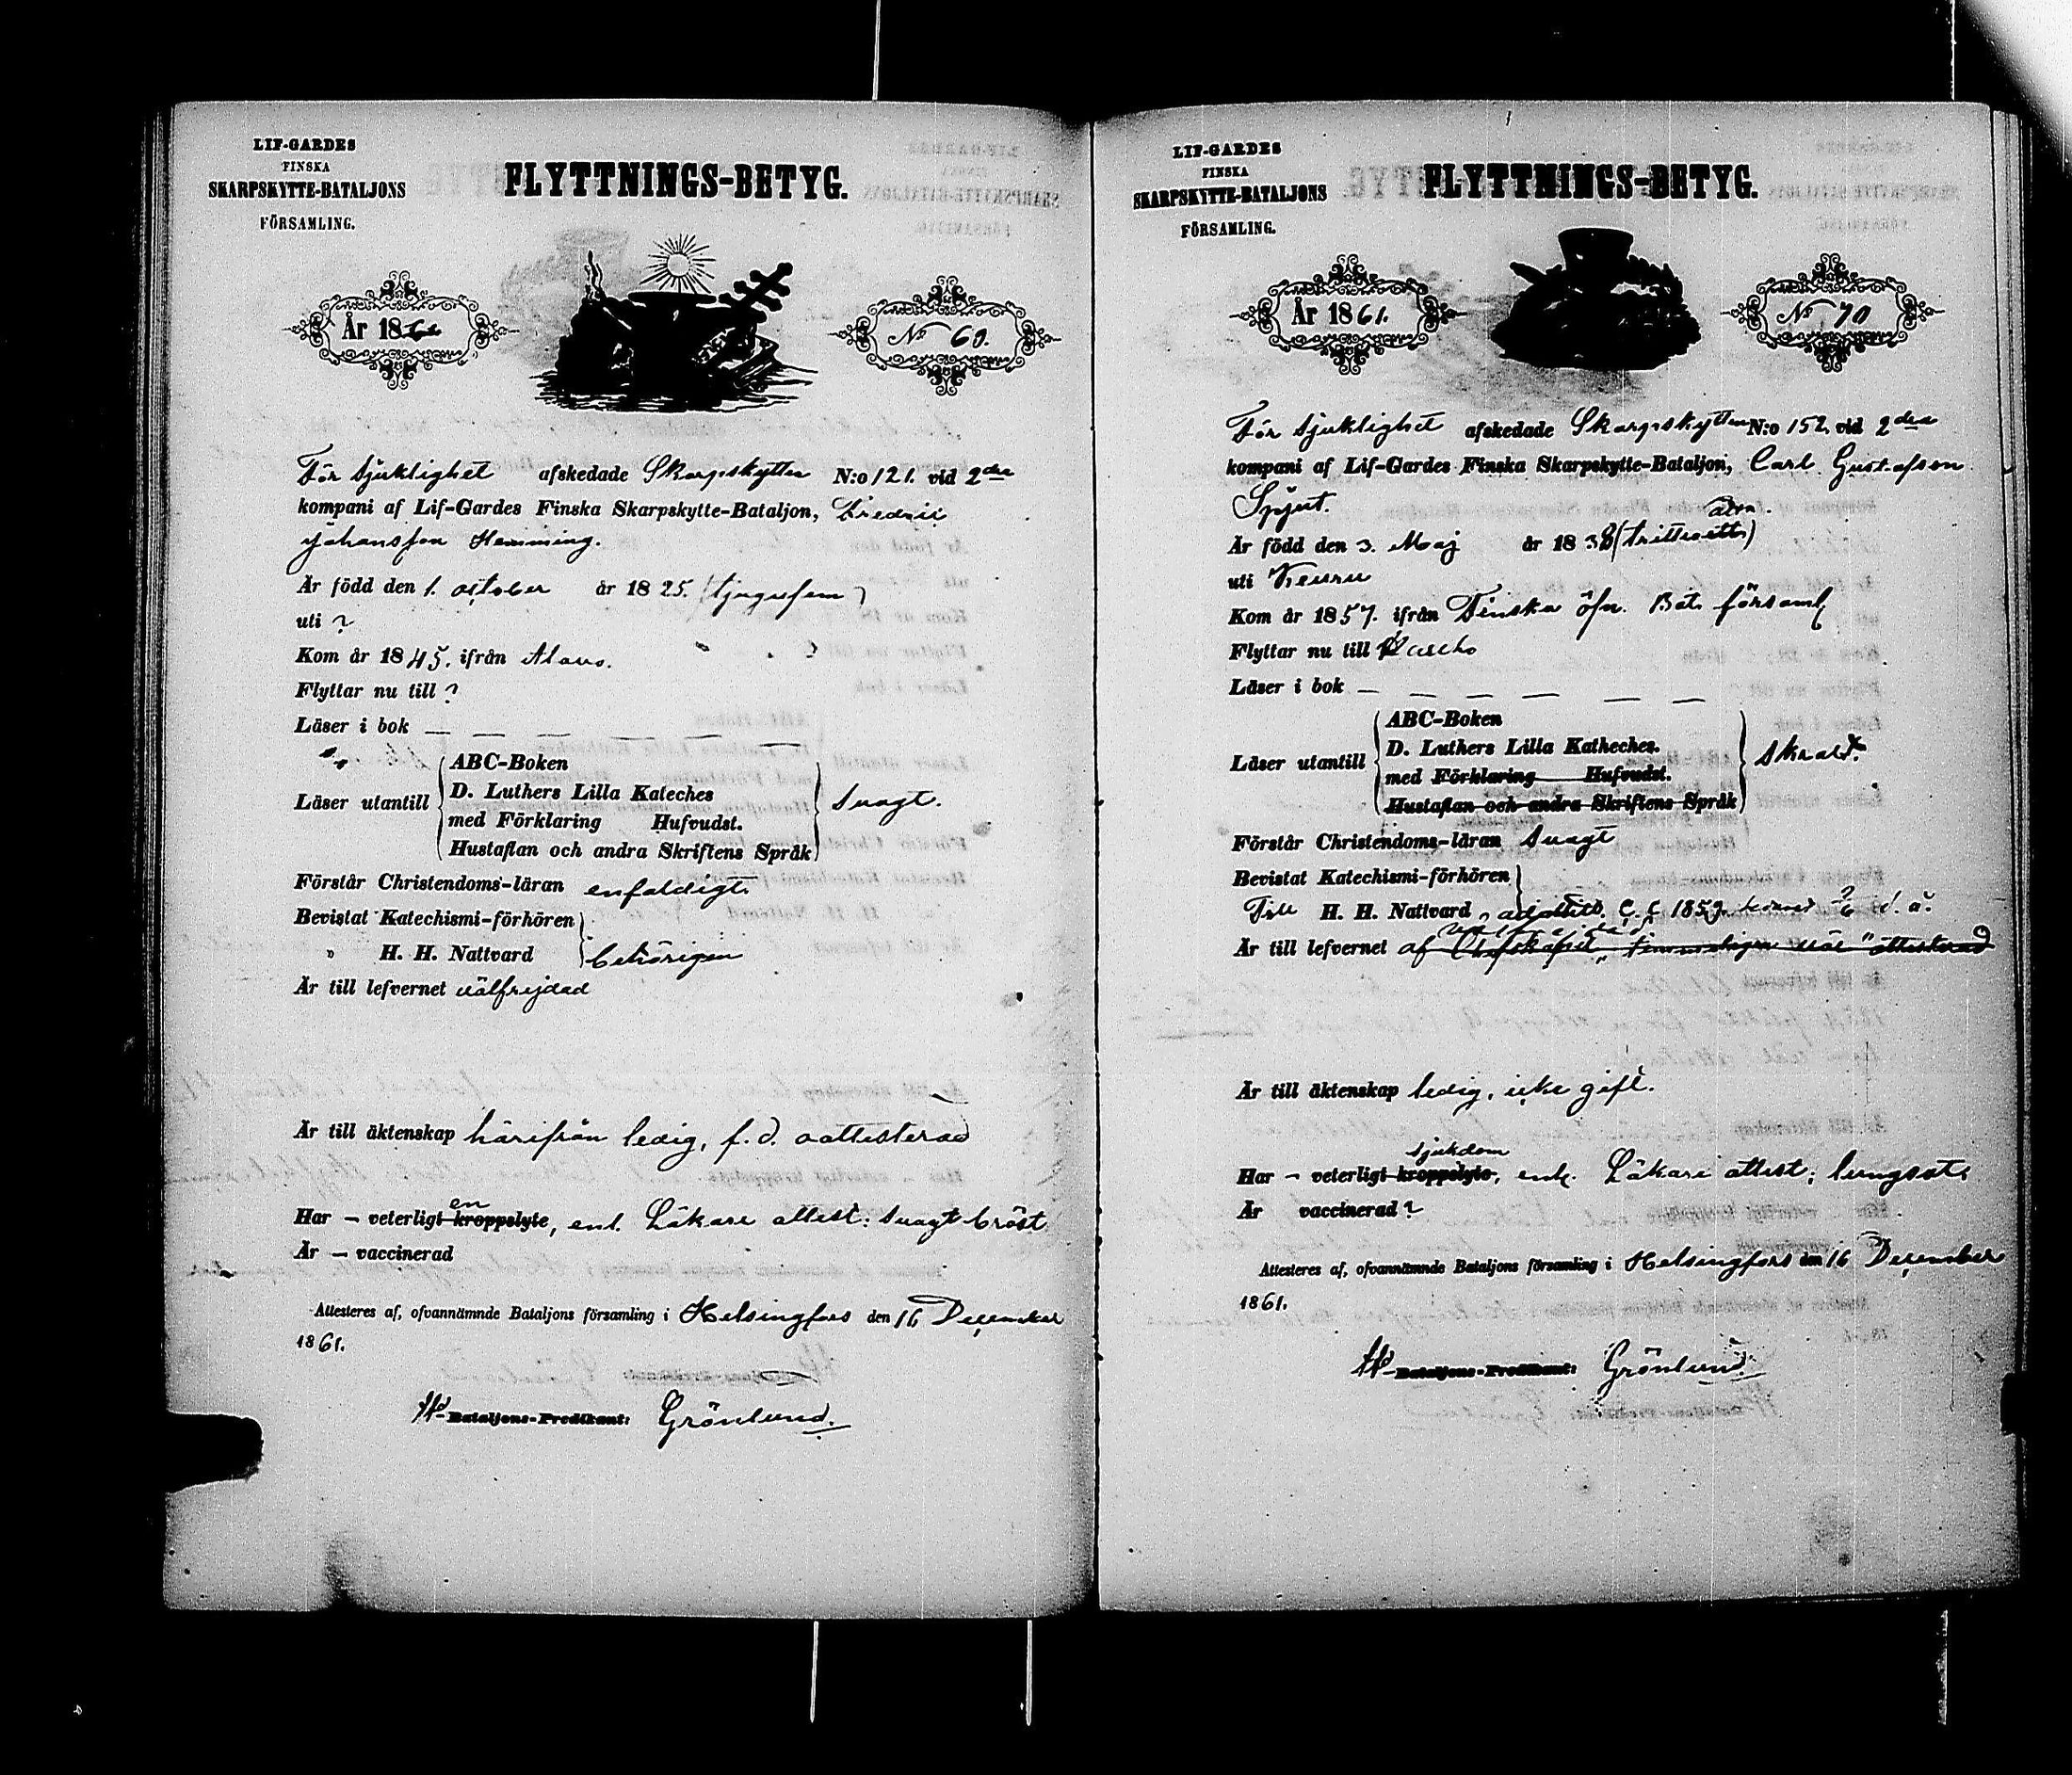 LIF-GARDES
FINSKA
SKARPSKYTTE-BATALJONS
FÖRSAMLING.
FLYTTNINGS-BETYG.
År 186
No 69.
För sjuklighet afskedade Skarpskytten N:o 121. vid 2dra
kompani af Lif-Gardes Finska Skarpskytte-Bataljon, Fredric
Johansson Hemming.
Är född den 1. october år 1825. (tjugufem)
uti ?
Kom år 1845. ifrån Alavo.
Flyttar nu till ?
Läser i bok — — — — — —
Läser utantill
ABC-Boken
D. Luthers Lilla Kateches
med Förklaring Hufvudst.
Hustaflan och andra Skriftens Språk
svagt.
Förstår Christendoms-läran enfaldigt.
Bevistat Katechismi-förhören
" H. H. Nattvard
behörigen
Är till lefvernet välfrejdad
Är till äktenskap härifrån ledig, f. d. oattesterad
Har – veterligt kroppslyte, en enl. Läkare attest: svagt bröst
Är – vaccinerad
Attesteres af, ofvannämnde Bataljons församling i Helsingfors den 16 December
1861.
Bataljons-Predikant: Grönlund.
LIF-GARDES
FINSKA
SKARPSKYTTE-BATALJONS
FÖRSAMLING.
FLYTTNINGS-BETYG.
År 1861.
No 70
För sjuklighet afskedade Skarpskytten N:o 152. vid 2dra
kompani af Lif-Gardes Finska Skarpskytte-Bataljon, Carl Gustafson
Spjut.
Är född den 3. Maj år 1838 (trittioåtta)
uti Keuru
Kom år 1857. ifrån Finska öfn. Bat. församl
Flyttar nu till
Läser i bok — — — — — —
Läser utantill
ABC-Boken
D. Luthers Lilla Katheches.
med Förklaring Hufvudst.
Hustaflan och andra Skriftens Språk
Förstår Christendoms-läran svagt
Bevistat Katechismi-förhören
Till H. H. Nattvard admitt. 1859.
Är till lefvernet af Chefskapet attesterad
Är till äktenskap ledig, icke gift.
sjukdom
Har – veterligt kroppslyte, enl. Läkare attest; lungsot.
Är vaccinerad ?
Attesteres af, ofvannämnde Bataljons församling i Helsingfors den 16 December
1861.
Bataljons-Predikant: Grönlund.